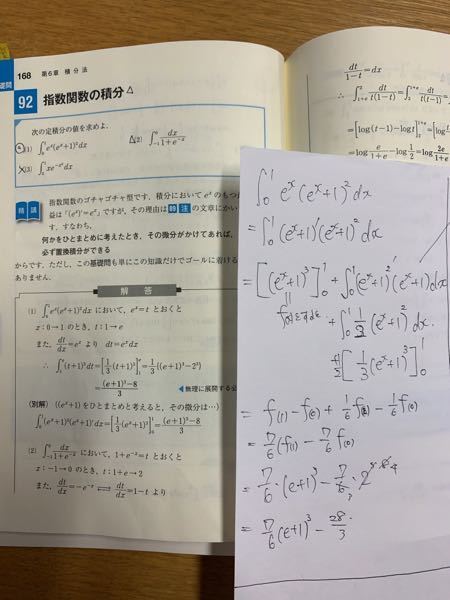 168 第6章 積分法
92 指数関数の積分 △
次の定積分の値を求めよ．
(1) ∫₀¹ eˣ(eˣ+1)²dx
△(2) ∫₋₁⁰ dx/(1+e⁻ˣ)
×(3)
精講
指数関数のゴチャゴチャ型です．積分において eˣ のもつ
益は「(eˣ)′=eˣ」ですが，その理由は
注
の文章にか
す．すなわち，
何かをひとまとめに考えたとき，その微分がかけてあれば，
必ず置換積分ができる
からです．ただし，この基礎問も単にこの知識だけでゴールに着ける
ありません．
解答
(1) ∫₀¹ eˣ(eˣ+1)²dx において，eˣ=t とおくと
x：0→1 のとき，t：1→e
また，dt/dx=eˣ より dt=eˣdx
∴ ∫₁ᵉ(t+1)²dt=[1/3(t+1)³]₁ᵉ=1/3{(e+1)³−2³}
=((e+1)³−8)/3
◀無理に展開する必
(別解) ((eˣ+1)をひとまとめと考えると，その微分は…)
∫₀¹(eˣ+1)²(eˣ+1)′dx=[1/3(eˣ+1)³]₀¹=((e+1)³−8)/3
(2) ∫₋₁⁰ dx/(1+e⁻ˣ) において，1+e⁻ˣ=t とおくと
x：−1→0 のとき，t：1+e→2
また，dt/dx=−e⁻ˣ ⟺ dt/dx=1−t より
dt/(1−t)=dx
=[log(t−1)−log t]
=log e/(e+1) − log 1/2 = log 2e/(e+1)
∫₀¹ eˣ(eˣ+1)²dx
=∫₀¹(eˣ+1)′(eˣ+1)²dx
=[(eˣ+1)³]₀¹+∫₀¹(eˣ+1)′(eˣ+1)dx
f(x)とする
+∫₀¹ 1/2(eˣ+1)²dx.
+1/2[1/3(eˣ+1)³]₀¹
=f(1)−f(0)+1/6 f(1)−1/6 f(0)
=7/6 f(1)−7/6 f(0)
=7/6·(e+1)³−7/6·2
=7/6(e+1)³−28/3.